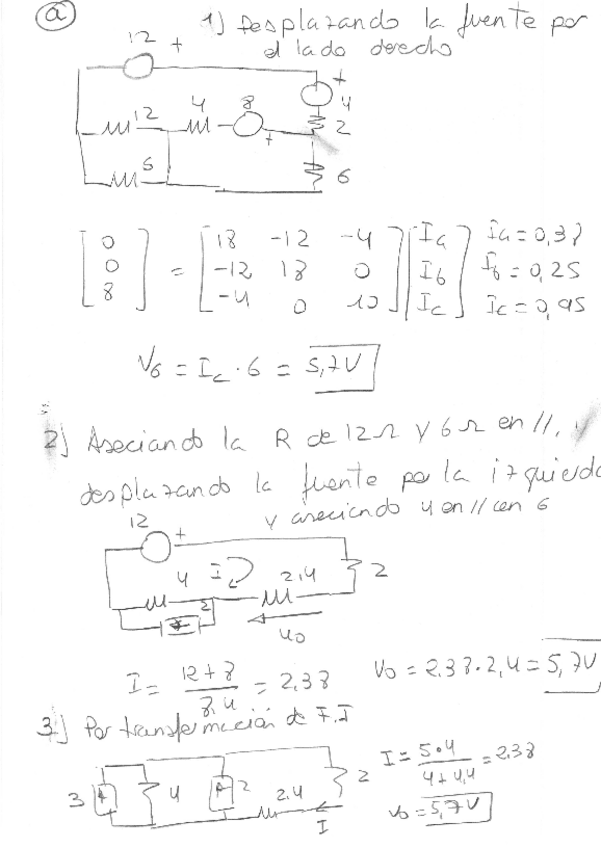 a
1) Desplazando la fuente por
el lado derecho
12 +
+
4
12 4 8 2
+
5
6
[0 0 8] = [18 -12 -4 -12 18 0 -4 0 10] [Ia Ib Ic]
Ia = 0,37
Ib = 0,25
Ic = 0,95
V6 = Ic · 6 = 5,7V
2) Asociando la R de 12Ω y 6Ω en //, y
desplazando la fuente por la izquierda
y asociando 4 en // con 6
12 +
4 I 2,4 2
2
u0
I = 12+8 / 8,4 = 2,38
V0 = 2,38·2,4 = 5,7V
3) Por transformación de F.I
3 4 2 2,4 2
I
I = 5·4 / 4+4,4 = 2,38
V0 = 5,7V